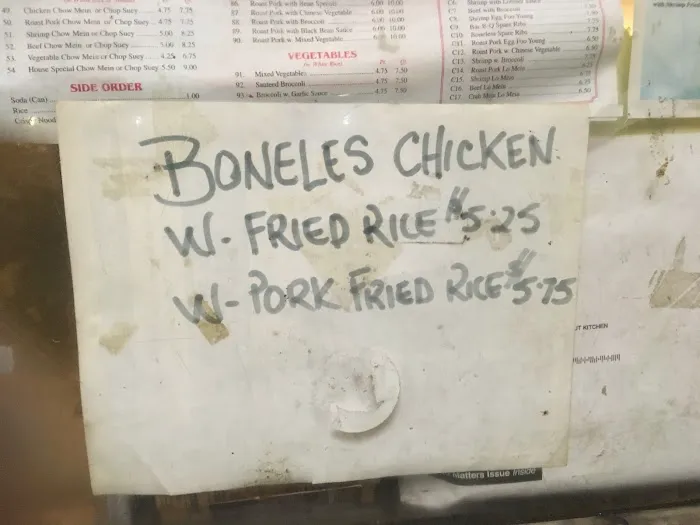 49. Chicken Chow Mein or Chop Suey 4.75 7.75
50. Roast Pork Chow Mein or Chop Suey 4.75 7.75
51. Shrimp Chow Mein or Chop Suey 5.00 8.25
52. Beef Chow Mein or Chop Suey 5.00 8.25
53. Vegetable Chow Mein or Chop Suey 4.25 6.75
54. House Special Chow Mein or Chop Suey 5.50 9.00
SIDE ORDER
Soda (Can) 1.00
Rice
87. Roast Pork with Chinese Vegetable
88. Roast Pork with Broccoli
89. Roast Pork with Black Bean Sauce
90. Roast Pork w. Mixed Vegetable
VEGETABLES
(w. White Rice)
91. Mixed Vegetables 4.75 7.50
92. Sauteed Broccoli 4.75 7.50
93. Broccoli w. Garlic Sauce 4.75 7.50
Shrimp Egg Foo Young
C9. Bar-B-Q Spare Ribs
C10. Boneless Spare Ribs
C11. Roast Pork Egg Foo Young
C12. Roast Pork w. Chinese Vegetable
C13. Shrimp w. Broccoli
C14. Roast Pork Lo Mein
C15. Shrimp Lo Mein
C16. Beef Lo Mein
C17.
BONELES CHICKEN
W- FRIED RICE $5.25
W- PORK FRIED RICE $5.75
UT KITCHEN
Matters Issue Inside